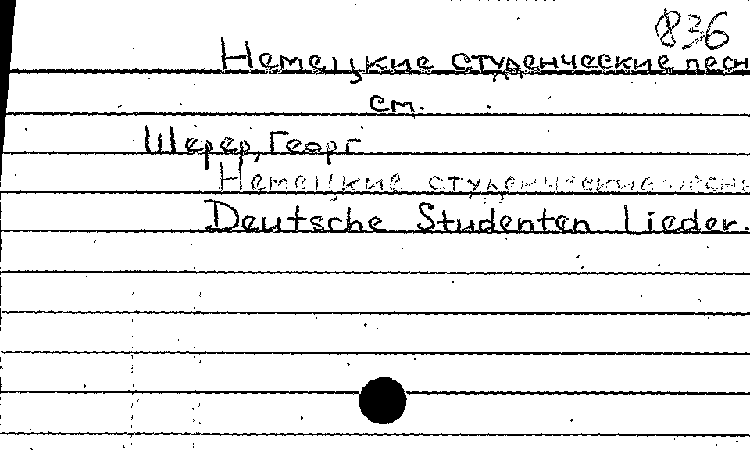 836
Немецкие студенческие песн
см.
Шерер, Георг
Немецкие студенческие песн
Deutsche Studenten Lieder.